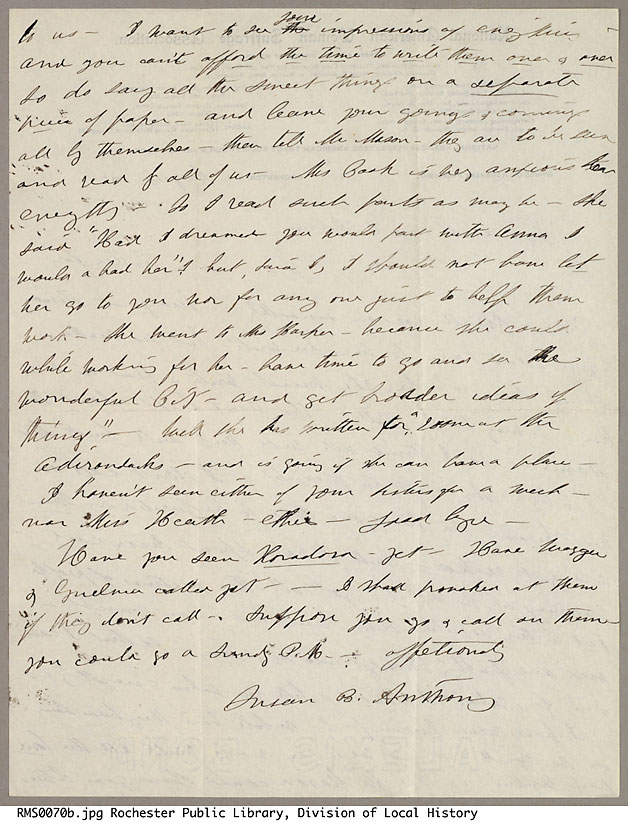 to us — I want to see your impressions of everything
and you can't afford the time to write them over & over
so do say all the sweet things on a separate
piece of paper — and leave your goings & comings
all by themselves — then tell Mr Mason — they are to be seen
and read of all of us — Mrs Cook is very anxious to hear
everything — So I read such parts as may be — She
said "Had I dreamed you would part with Anna I
would a had her"! but, said I, I should not have let
her go to you nor for any one just to help them
work — She went to Mrs Harper — because she could
while working for her — have time to go and see the
wonderful City — and get broader ideas of
things" — Well she has written for a room at the
Adirondacks — and is going if she can have a place —
I haven't seen either of your sisters for a week —
nor Miss Heath — either —
Have you seen Floradora — yet — Have Maggie
& Guelma called yet — — I shall provoked at them
if they don't call — Suppose you go & call on them
you could go a Sunday P.M. — affectionately
Susan B. Anthony
RMS0070b.jpg Rochester Public Library, Division of Local History